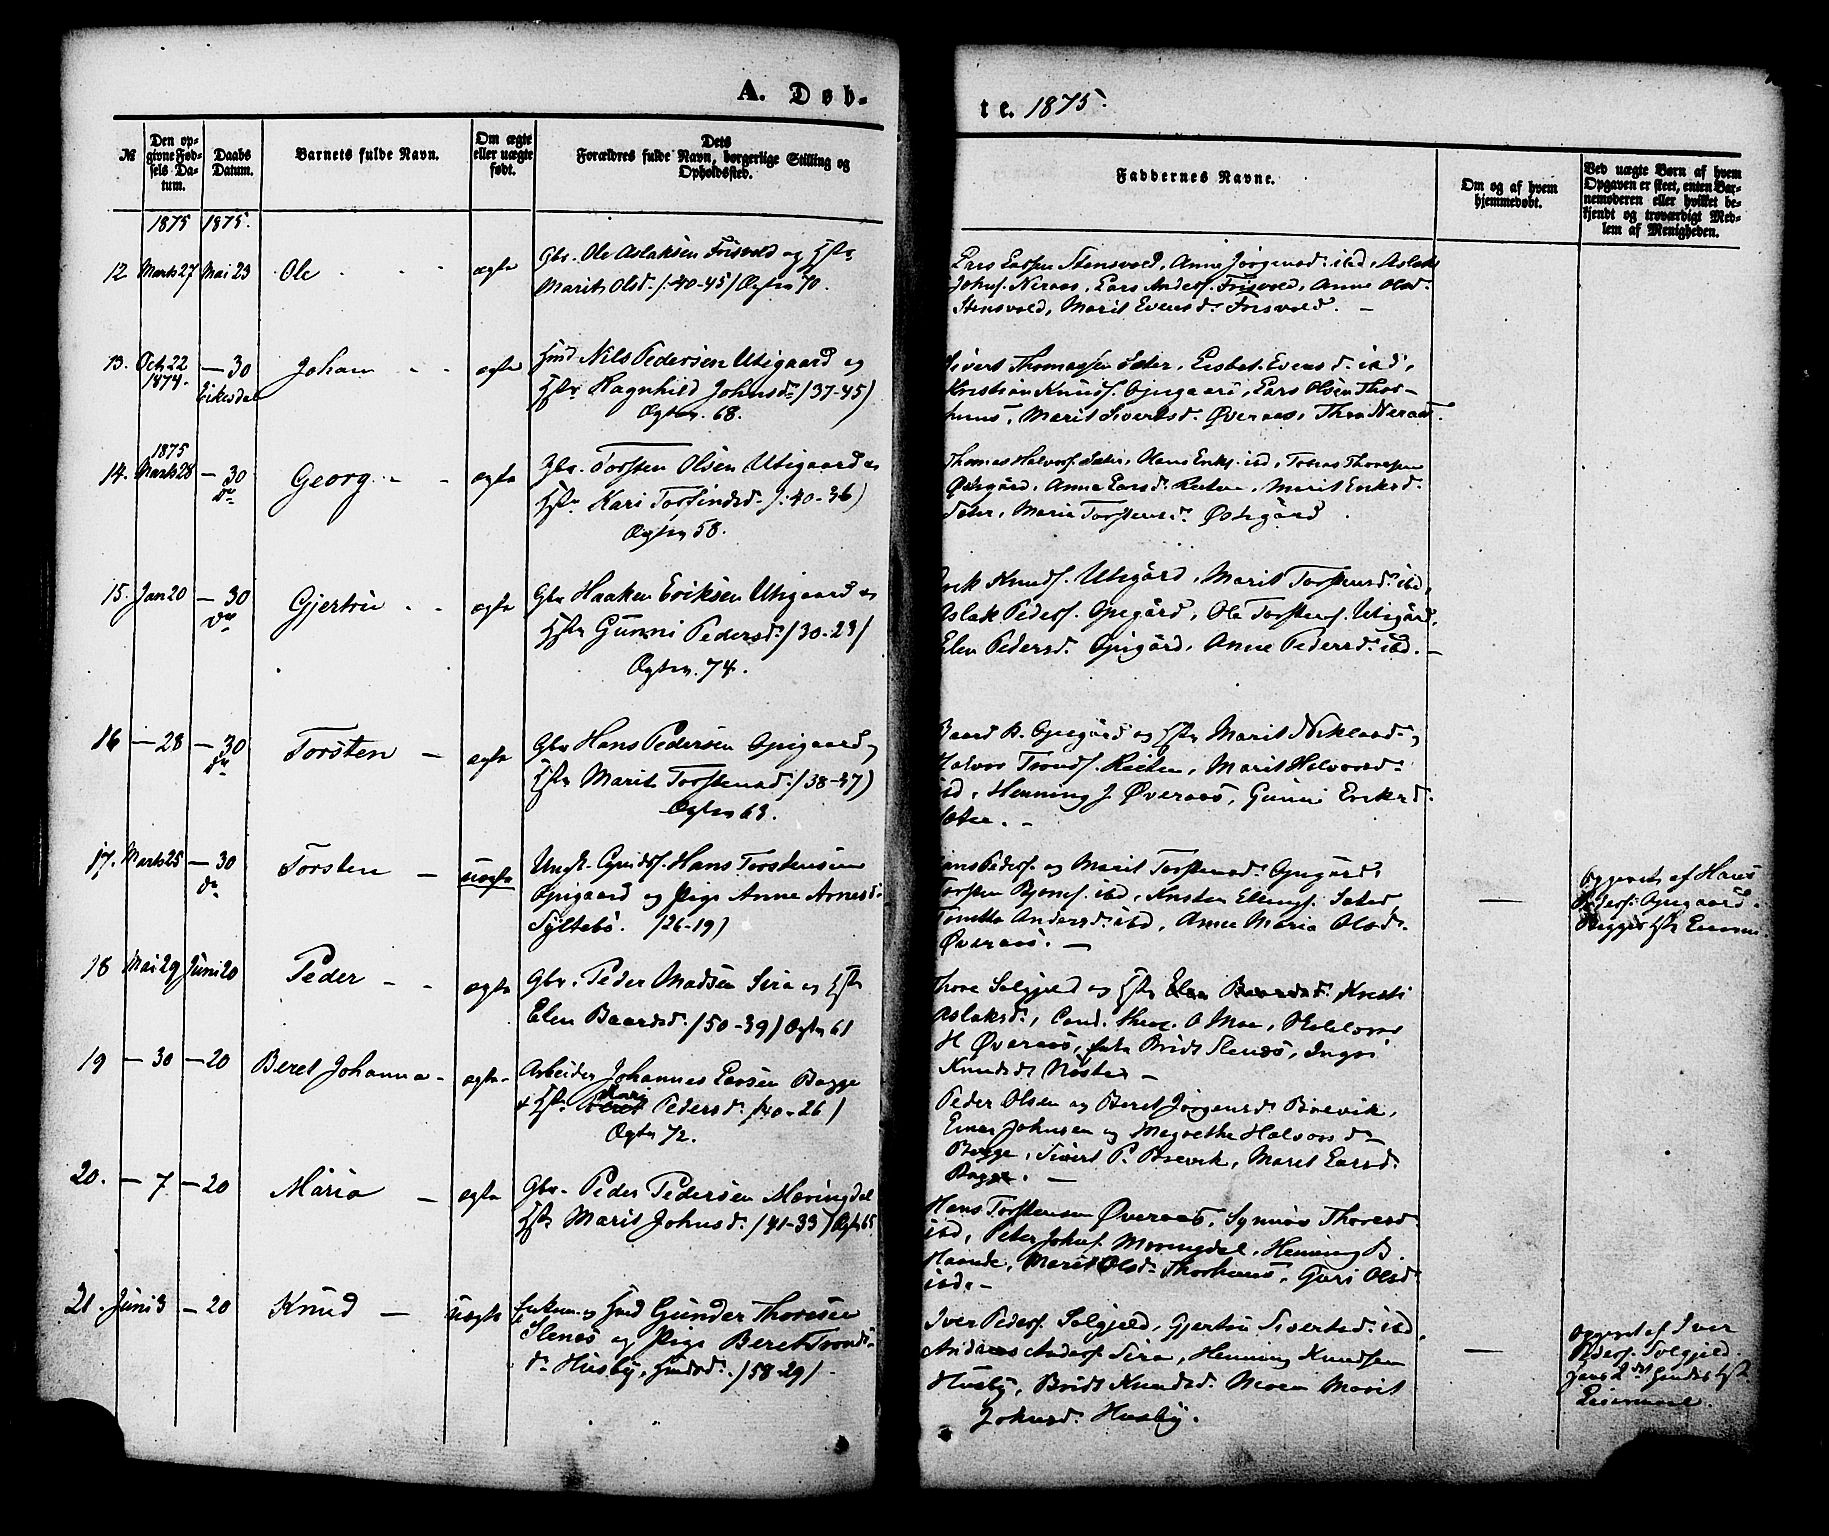 A. Døb-
te. 1875.
№
Den opgivne Fødsels Datum.
Daabs Datum.
Barnets fulde Navn.
Om ægte eller uægte født.
Dets Forældres fulde Navn, borgerlige Stilling og Opholdssted.
Faddernes Navne.
Om og af hvem hjemmedøbt.
Ved uægte Børn af hvem Opgaven er skeet, enten Barnemoderen eller hvilket bekjendt og troværdigt Medlem af Menigheden.
1875 1875.
12 Marts 27 Mai 23 Ole - - - ægte
Gbr. Ole Aslaksen Frisvold og Hstr
Marit Olsd. /: 40-45/ Ægtev. 70.
Lars Larsen Stensvold, Anne Jørgensd. ibd, Aslak
Johns. Neraas, Lars Anders. Frisvold, Anne Olsd.
Stensvold, Marit Evensd. Frisvold. -
13. Octb 22 1874. - 30 Eikesdal Johan - - ægte
Hmd Nils Pedersen Utigaard og
Hstr Ragnhild Johnsd. /37-45)
Ægtev. 68.
Sivert Thomassen Sæter, Lisbet Evensd. ibd,
Kristian Knuds. Opigaard, Lars Olsen Thor-
huus, Marit Sivertsd. Øveraas, Thea Neraas
1875
14. Marts 28 - 30 do Georg - - ægte
Gbr. Torsten Olsen Utigaard og
Hstr Kari Torfindsd. /: 40-36)
Ægtev 58.
Thomas Halvors. Sæter, Hans Eriks. ibd, Tobias Thoresen
Østigård, Anne Larsd. Reiten, Marit Eriksd.
Sæter, Maria Torstensd. Østigård.
15. Jan 20 - 30 do Gjertru - - ægte
Gbr Haaken Eriksen Utigaard og
Hstr Gunni Pedersd. /30-23/
Ægtev. 74.
Erik Knuds. Utigård, Marit Torstensd. ibd,
Aslak Peders. Opigård, Ole Torstens. Utigård,
Elen Pedersd. Opigård, Anne Pedersd. ibd. -
16 - 28 - 30 do Torsten - ægte
Gbr Hans Pedersen Opigaard og
Hstr Marit Torstensd. /38-47)
Ægtev 63.
Baard B. Opigård og Hstr Marit Niklasd.,
Halvor Tronds. Reiten, Marit Halvorsd.
ibd, Henning J. Øveraas, Gunni Eriksd.
17. Marts 25 - 30 do Torsten - uægte
Ungk. Hans Torstensen
Opigaard og Pige Anne Arnesd.
Syltebø. /26-19)
Hans Peders. og Marit Torstensd. Opigård,
Torsten Bjørns. ibd, Knsten Ellings. Sæter,
Andersd. ibd, Anne Maria Olsd.
Øveraas. -
-
Opgivet af Hans
Peders. Opigaard.
Begges 1ste Leierm.
18 Mai 29 Juni 20 Peder - - ægte
Gbr. Peder Madsen Sira og Hstr
Elen Baardsd. /50-39/ Ægtev 61
Thore Solgjeld og Hstr Elen Baardsd. Kristi
Aslaksd., Cand. theol. O Moe, Halvor
H Øveraas, Bridt Stenøs, Ingri
Knudsd Nøste. -
19 - 30 - 20 Beret Johanna - ægte
Arbeider Johannes Larsen Bogge
& Hstr Beret Kari Pedersd. /40-26)
Ægtev 72.
Peder Olsen og Beret Jørgensd Boevik,
Einar Johnsen og Magrethe Halvorsd.
Bogge, Sivert P. Boevik, Marit Larsd.
Bogge. -
20. - 7 - 20 Maria - ægte
Gbr. Peder Pedersen Meringdal
Hstr Marit Johnsd. /41-33/ Ægtev 65
Hans Torstensen Øveraas, Synnøv Thoresd
ibd, Peter Johns. Meringdal, Henning B.
Haande, Marit Olsd. Thorhuus, Guri Olsd.
ibd. -
21. Juni 3 - 20 Knud - uægte
Enkem. og Hmd Gunder Thoresen
Stenøs og Pige Beret Trond-
sd. Husby, Hmdsd. /58-29/
Iver Peders. Solgjeld, Gjertru Sivertsd. ibd.
Andreas Anders. Sira, Henning Knudsen
Husby, Bridt Knudsd. Moen Marit
Johnsd. Husby.
-
Opgivet af Iver
Peders. Solgjeld.
hans 2det hendes 1ste
Leiermaal.